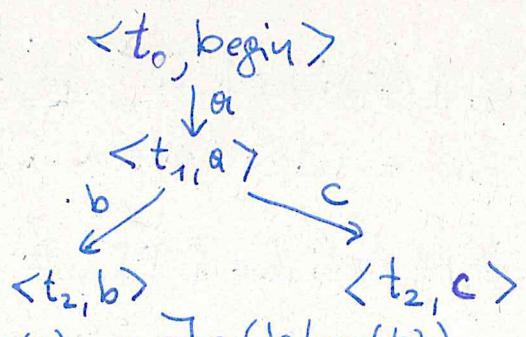 <t₀, begin>
a
<t₁, a>
b c
<t₂, b> <t₂, c>